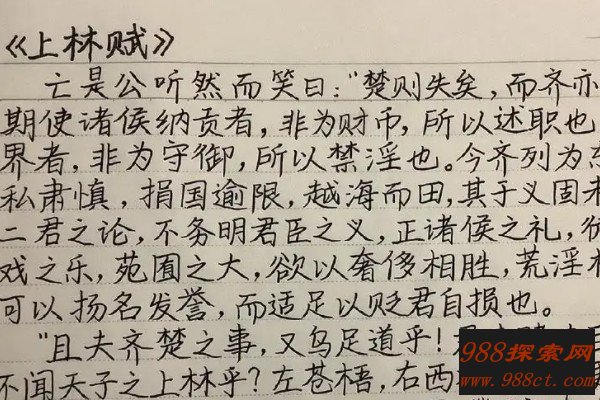 《上林赋》
亡是公听然而笑曰："楚则失矣,而齐亦
期使诸侯纳贡者,非为财币,所以述职也
界者,非为守御,所以禁淫也。今齐列为东
私肃慎,捐国逾限,越海而田,其于义固未
二君之论,不务明君臣之义,正诸侯之礼,
戏之乐,苑囿之大,欲以奢侈相胜,荒淫相
可以扬名发誉,而适足以贬君自损也。
"且夫齐楚之事,又乌足道乎!
不闻天子之上林乎?左苍梧,右西
988探索网
www.988ct.com